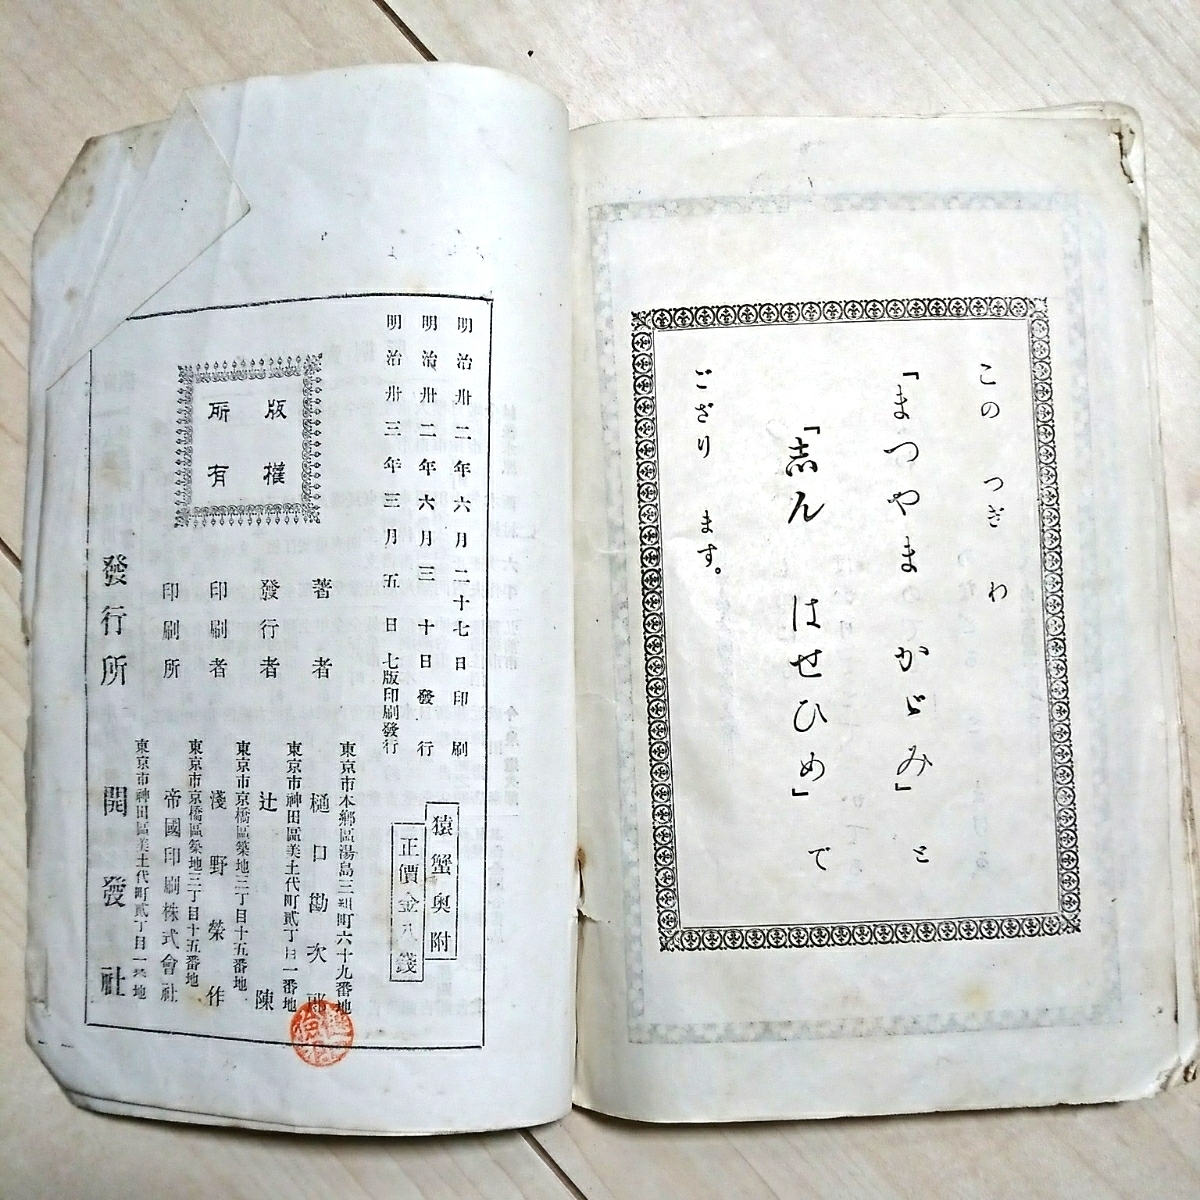 この つぎ わ
「まつやま かゞみ」 と
「志ん はせひめ」 で
ござり ます。
猿蟹奥附
正價金八錢
明治卅二年六月二十七日印刷
明治卅二年六月三十日發行
明治卅三年三月五日七版印刷發行
版權
所有
東京市本郷區湯島三組町六十九番地
著者 樋口勘次郎
東京市神田區美土代町貳丁目一番地
發行者 辻陳
東京市京橋區築地三丁目十五番地
印刷者 淺野榮作
東京市京橋區築地三丁目十五番地
印刷所 帝國印刷株式會社
東京市神田區美土代町貳丁目一番地
發行所 開發社